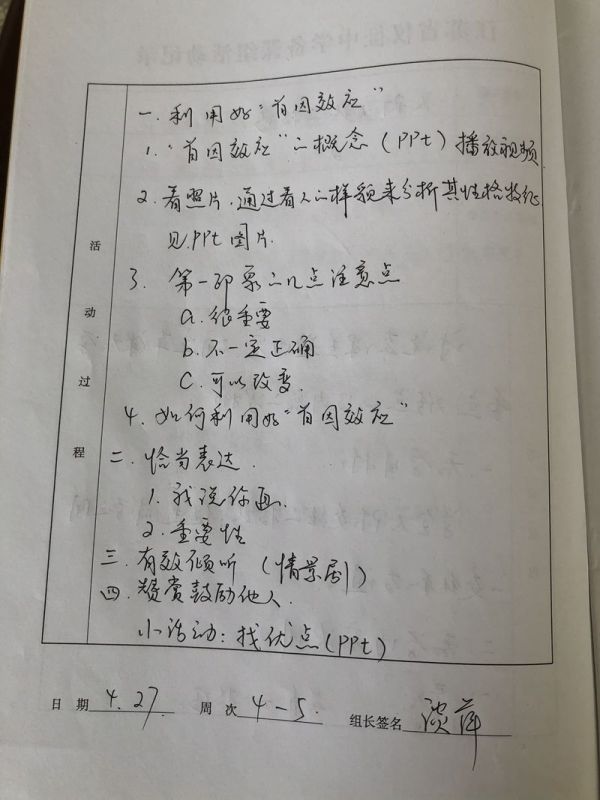 一.利用好"首因效应"
1."首因效应"的概念(PPt)播放视频
2.看照片.通过看人的样貌来分析其性格特征
见PPt图片.
3.第一印象的几点注意点
a.很重要
b.不一定正确
C.可以改变.
4.如何利用好"首因效应"
二.恰当表达.
1.我说你画.
2.重要性
三.有效倾听(情景剧)
四.赞赏鼓励他人.
小活动:找优点(PPt)
活动过程
日期 4.27. 周次 4-5. 组长签名